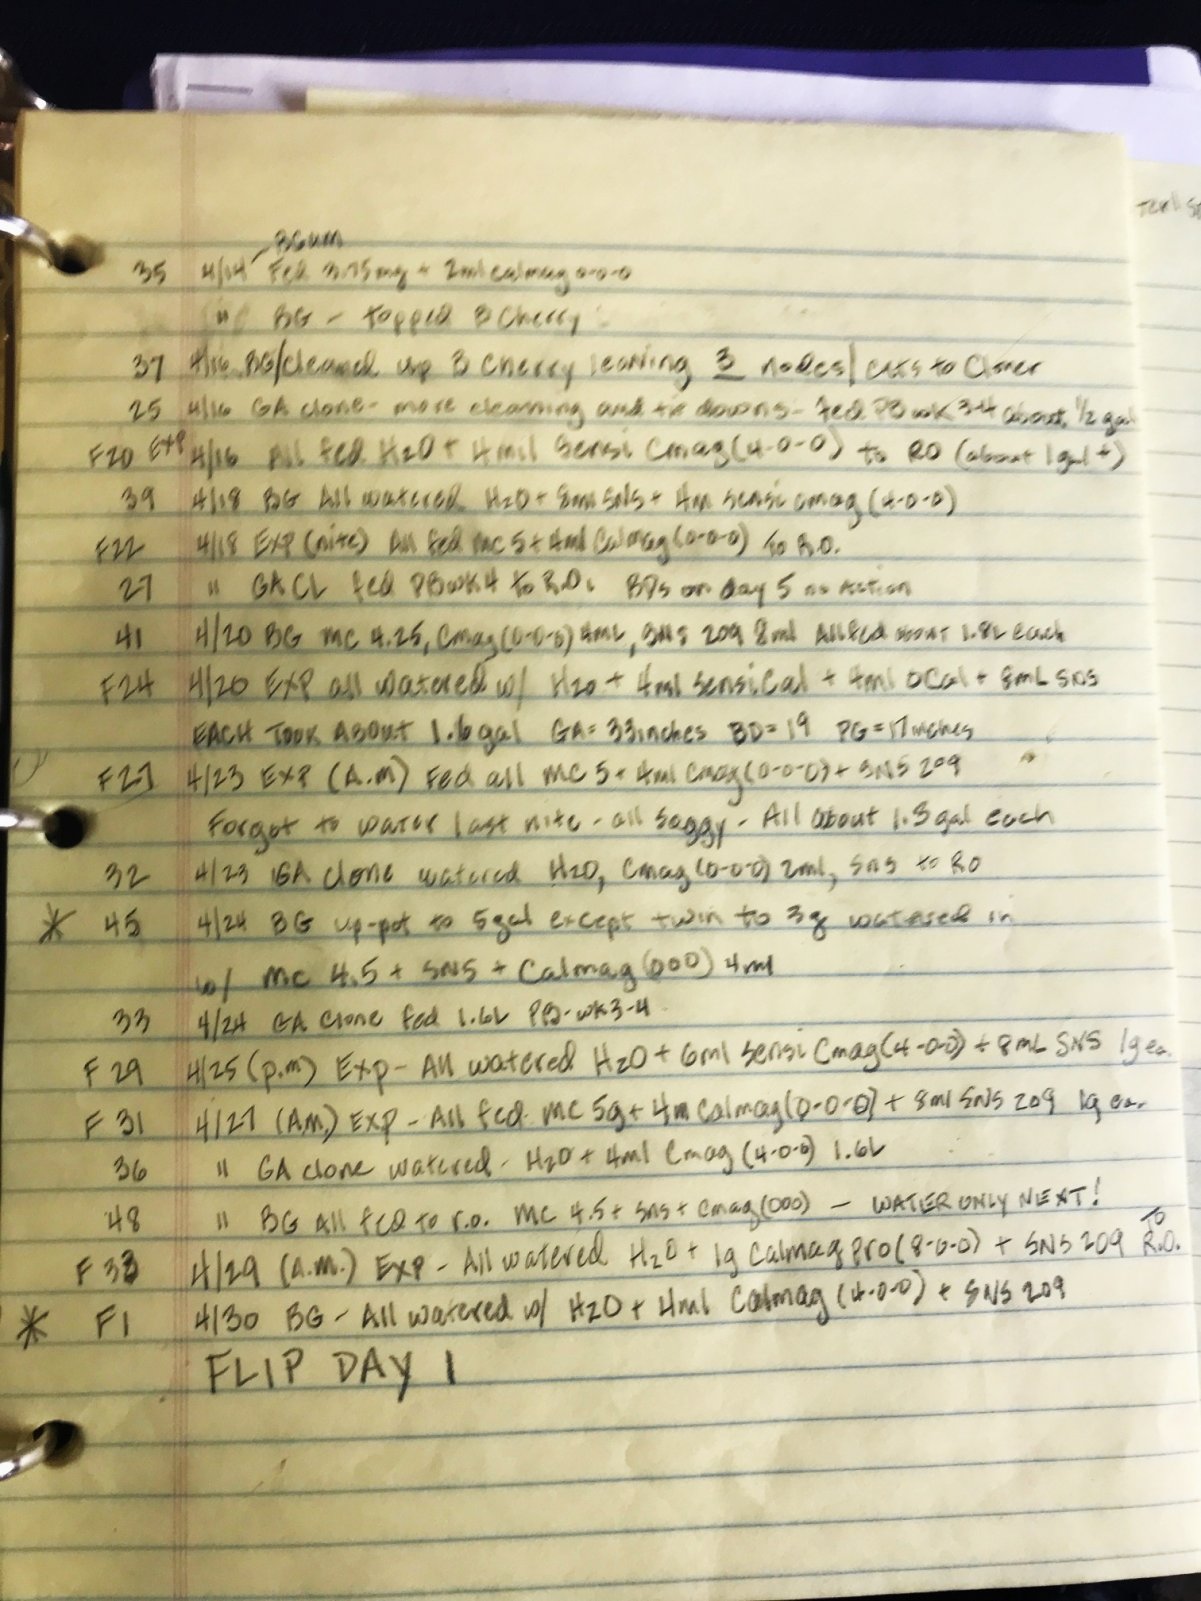 BGum
35 4/14 Fed 3.75mg + 2ml calmag 0-0-0
" BG - topped B Cherry
37 4/16 BG/cleaned up B Cherry leaving 3 nodes/cuts to Cloner
25 4/16 GA clone - more cleaning and tie downs - fed PB wk 3-4 about 1/2 gal
F20 EXP 4/16 All fed H2O + 4mil Sensi Cmag (4-0-0) to RO (about 1gal+)
39 4/18 BG All watered H2O + 8ml SNS + 4m sensi cmag (4-0-0)
F22 4/18 EXP (nite) All fed MC 5 + 4ml Calmag (0-0-0) To R.O.
27 " GA CL fed PB wk 4 to R.O. BPs on day 5 no action
41 4/20 BG MC 4.25, Cmag (0-0-0) 4mL, SNS 209 8ml All fed about 1.8L each
F24 4/20 EXP all watered w/ H2O + 4ml SensiCal + 4ml OCal + 8mL SNS
EACH TOOK ABOUT 1.6 gal GA = 33 inches BD = 19 PG = 17 inches
F27 4/23 EXP (A.M) Fed all MC 5 + 4ml Cmag (0-0-0) + SNS 209
Forgot to water last nite - all saggy - All about 1.3 gal each
32 4/23 GA clone watered H2O, Cmag (0-0-0) 2ml, SNS to RO
* 45 4/24 BG up-pot to 5gal except twin to 3g watered in
w/ MC 4.5 + SNS + Calmag (000) 4ml
33 4/24 GA clone fed 1.6L PB-wk3-4
F29 4/25 (p.m) Exp - All watered H2O + 6ml Sensi Cmag (4-0-0) + 8mL SNS 1g ea.
F31 4/27 (AM) EXP - All fed MC 5g + 4m Calmag (0-0-0) + 8ml SNS 209 1g ea.
36 " GA clone watered - H2O + 4ml Cmag (4-0-0) 1.6L
48 " BG All fed to r.o. MC 4.5 + SNS + Cmag (000) - WATER ONLY NEXT!
F33 4/29 (A.M.) EXP - All watered H2O + 1g Calmag Pro (8-0-0) + SNS 209 TO R.O.
* F1 4/30 BG - All watered w/ H2O + 4ml Calmag (4-0-0) + SNS 209
FLIP DAY 1